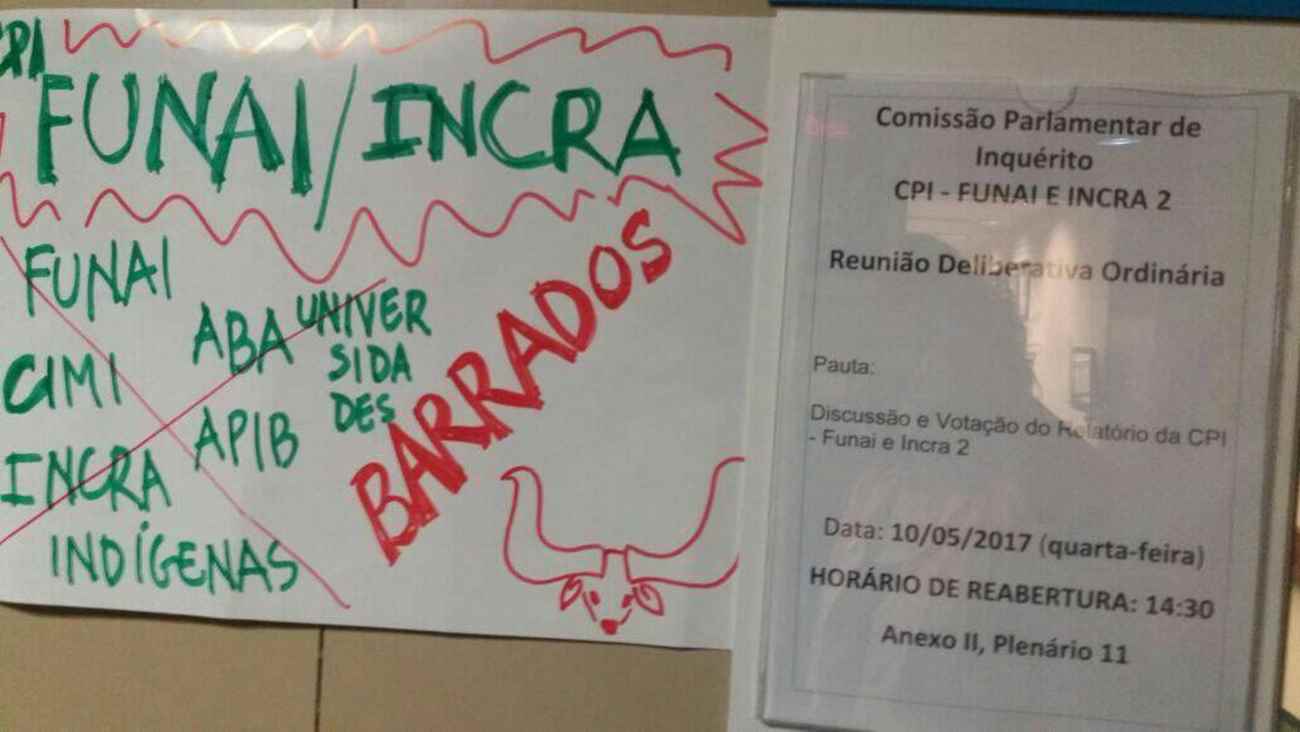 CPI
FUNAI/INCRA
FUNAI
CIMI
INCRA
INDÍGENAS
ABA
APIB
UNIVER
SIDA
DES
BARRADOS
Comissão Parlamentar de
Inquérito
CPI - FUNAI E INCRA 2
Reunião Deliberativa Ordinária
Pauta:
Discussão e Votação do Relatório da CPI
- Funai e Incra 2
Data: 10/05/2017 (quarta-feira)
HORÁRIO DE REABERTURA: 14:30
Anexo II, Plenário 11